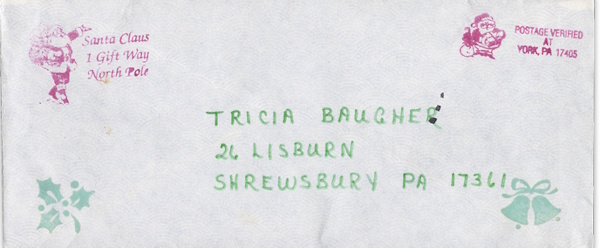 Santa Claus
1 Gift Way
North Pole
POSTAGE VERIFIED
AT
YORK, PA 17405
TRICIA BAUGHER
26 LISBURN
SHREWSBURY PA 17361